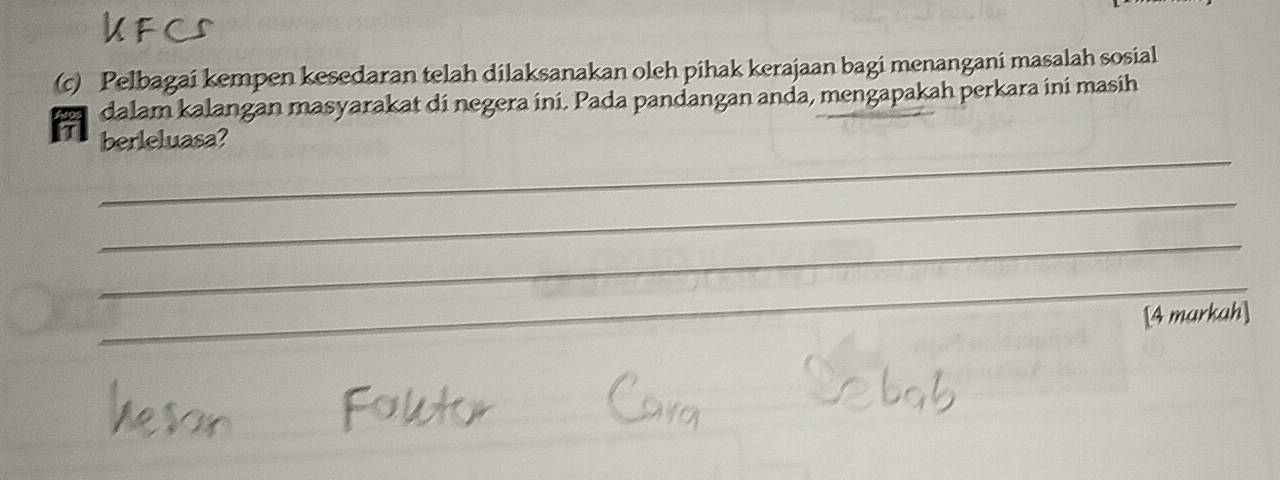 KFCS
(c) Pelbagai kempen kesedaran telah dilaksanakan oleh pihak kerajaan bagi menangani masalah sosial
dalam kalangan masyarakat di negera ini. Pada pandangan anda, mengapakah perkara ini masih
T berleluasa?
[4 markah]
Kesan Faktor Cara Sebab